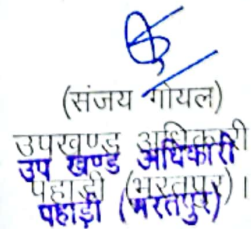 (संजय गोयल)
उपखण्ड अधिकारी
उप खण्ड अधिकारी
पहाड़ी (भरतपुर)।
पहाड़ी (भरतपुर)